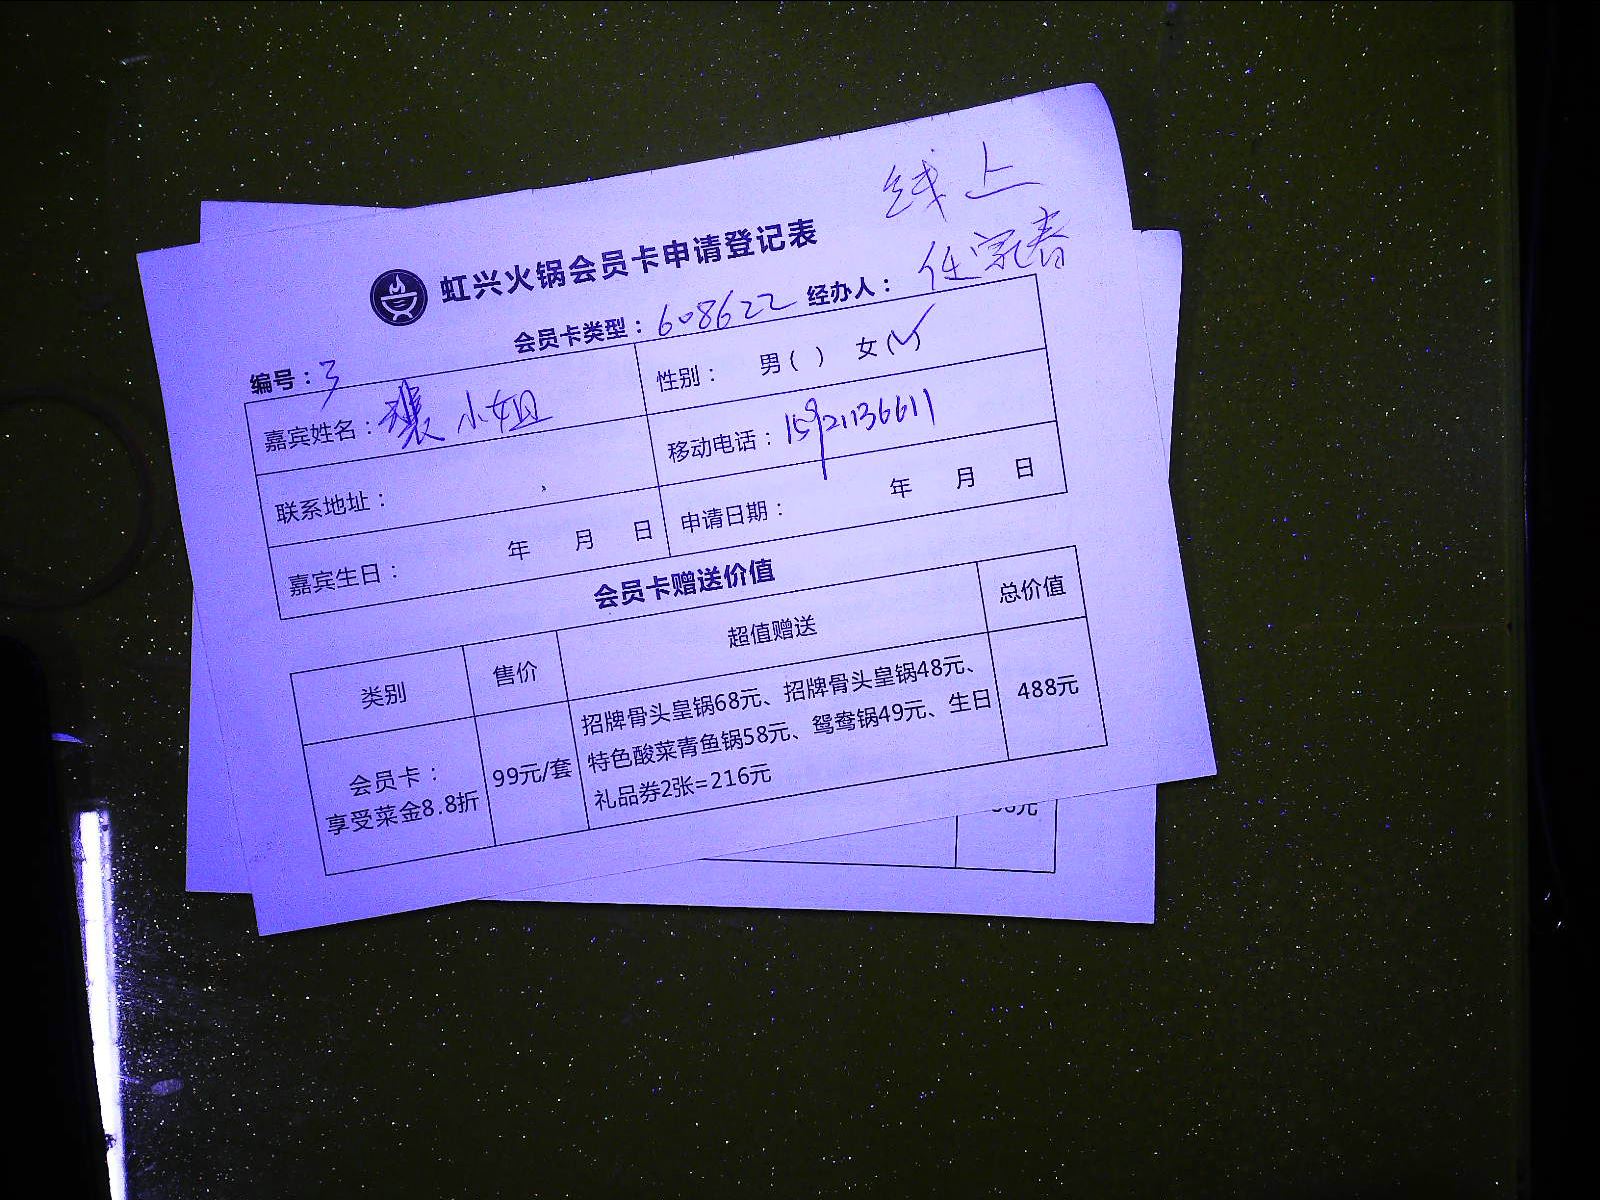 线上
虹兴火锅会员卡申请登记表
会员卡类型：608622 经办人：任家春
编号：3
嘉宾姓名： 小姐 性别： 男( ) 女(✓)
联系地址： 移动电话：15921136611
嘉宾生日： 年 月 日 申请日期： 年 月 日
会员卡赠送价值
类别 售价 超值赠送 总价值
会员卡：
享受菜金8.8折
99元/套
招牌骨头皇锅68元、招牌骨头皇锅48元、
特色酸菜青鱼锅58元、鸳鸯锅49元、生日
礼品券2张=216元
488元